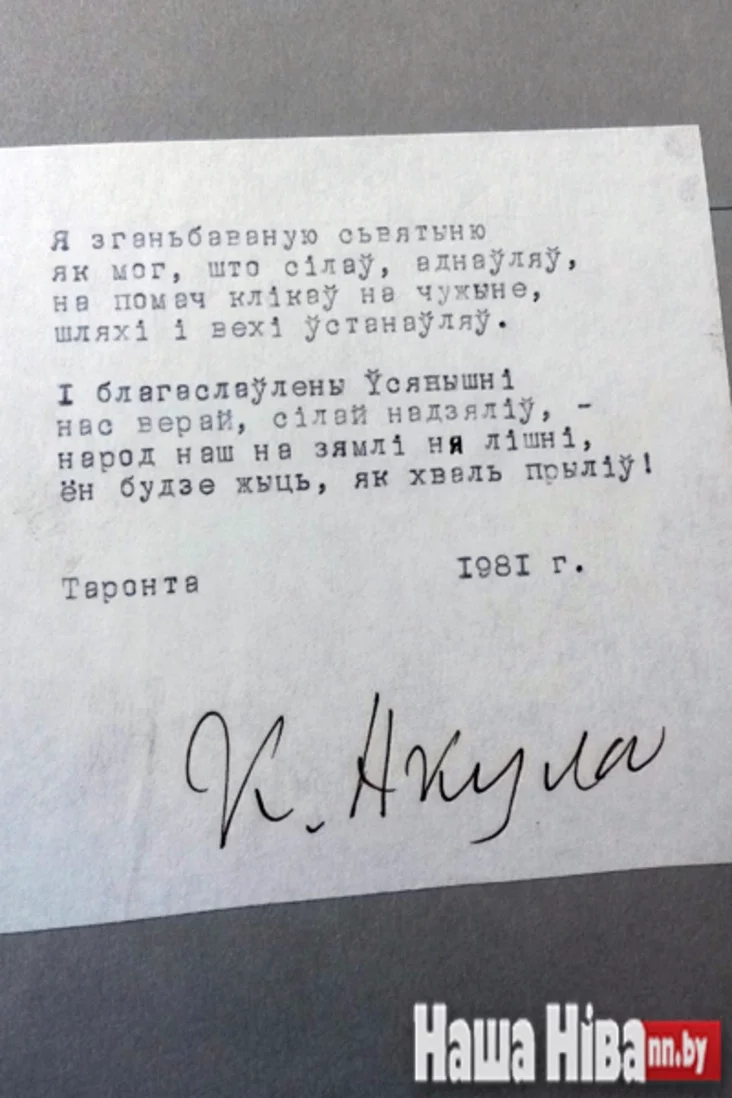 Я зганьбаваную сьвятыню
як мог, што сілаў, аднаўляў,
на помач клікаў на чужыне,
шляхі і вехі ўстанаўляў.
І благаслаўлены Ўсявышні
нас верай, сілай надзяліў, –
народ наш на зямлі ня лішні,
ён будзе жыць, як хваль прыліў!
Таронта 1981 г.
К. Акула
Наша Ніва nn.by